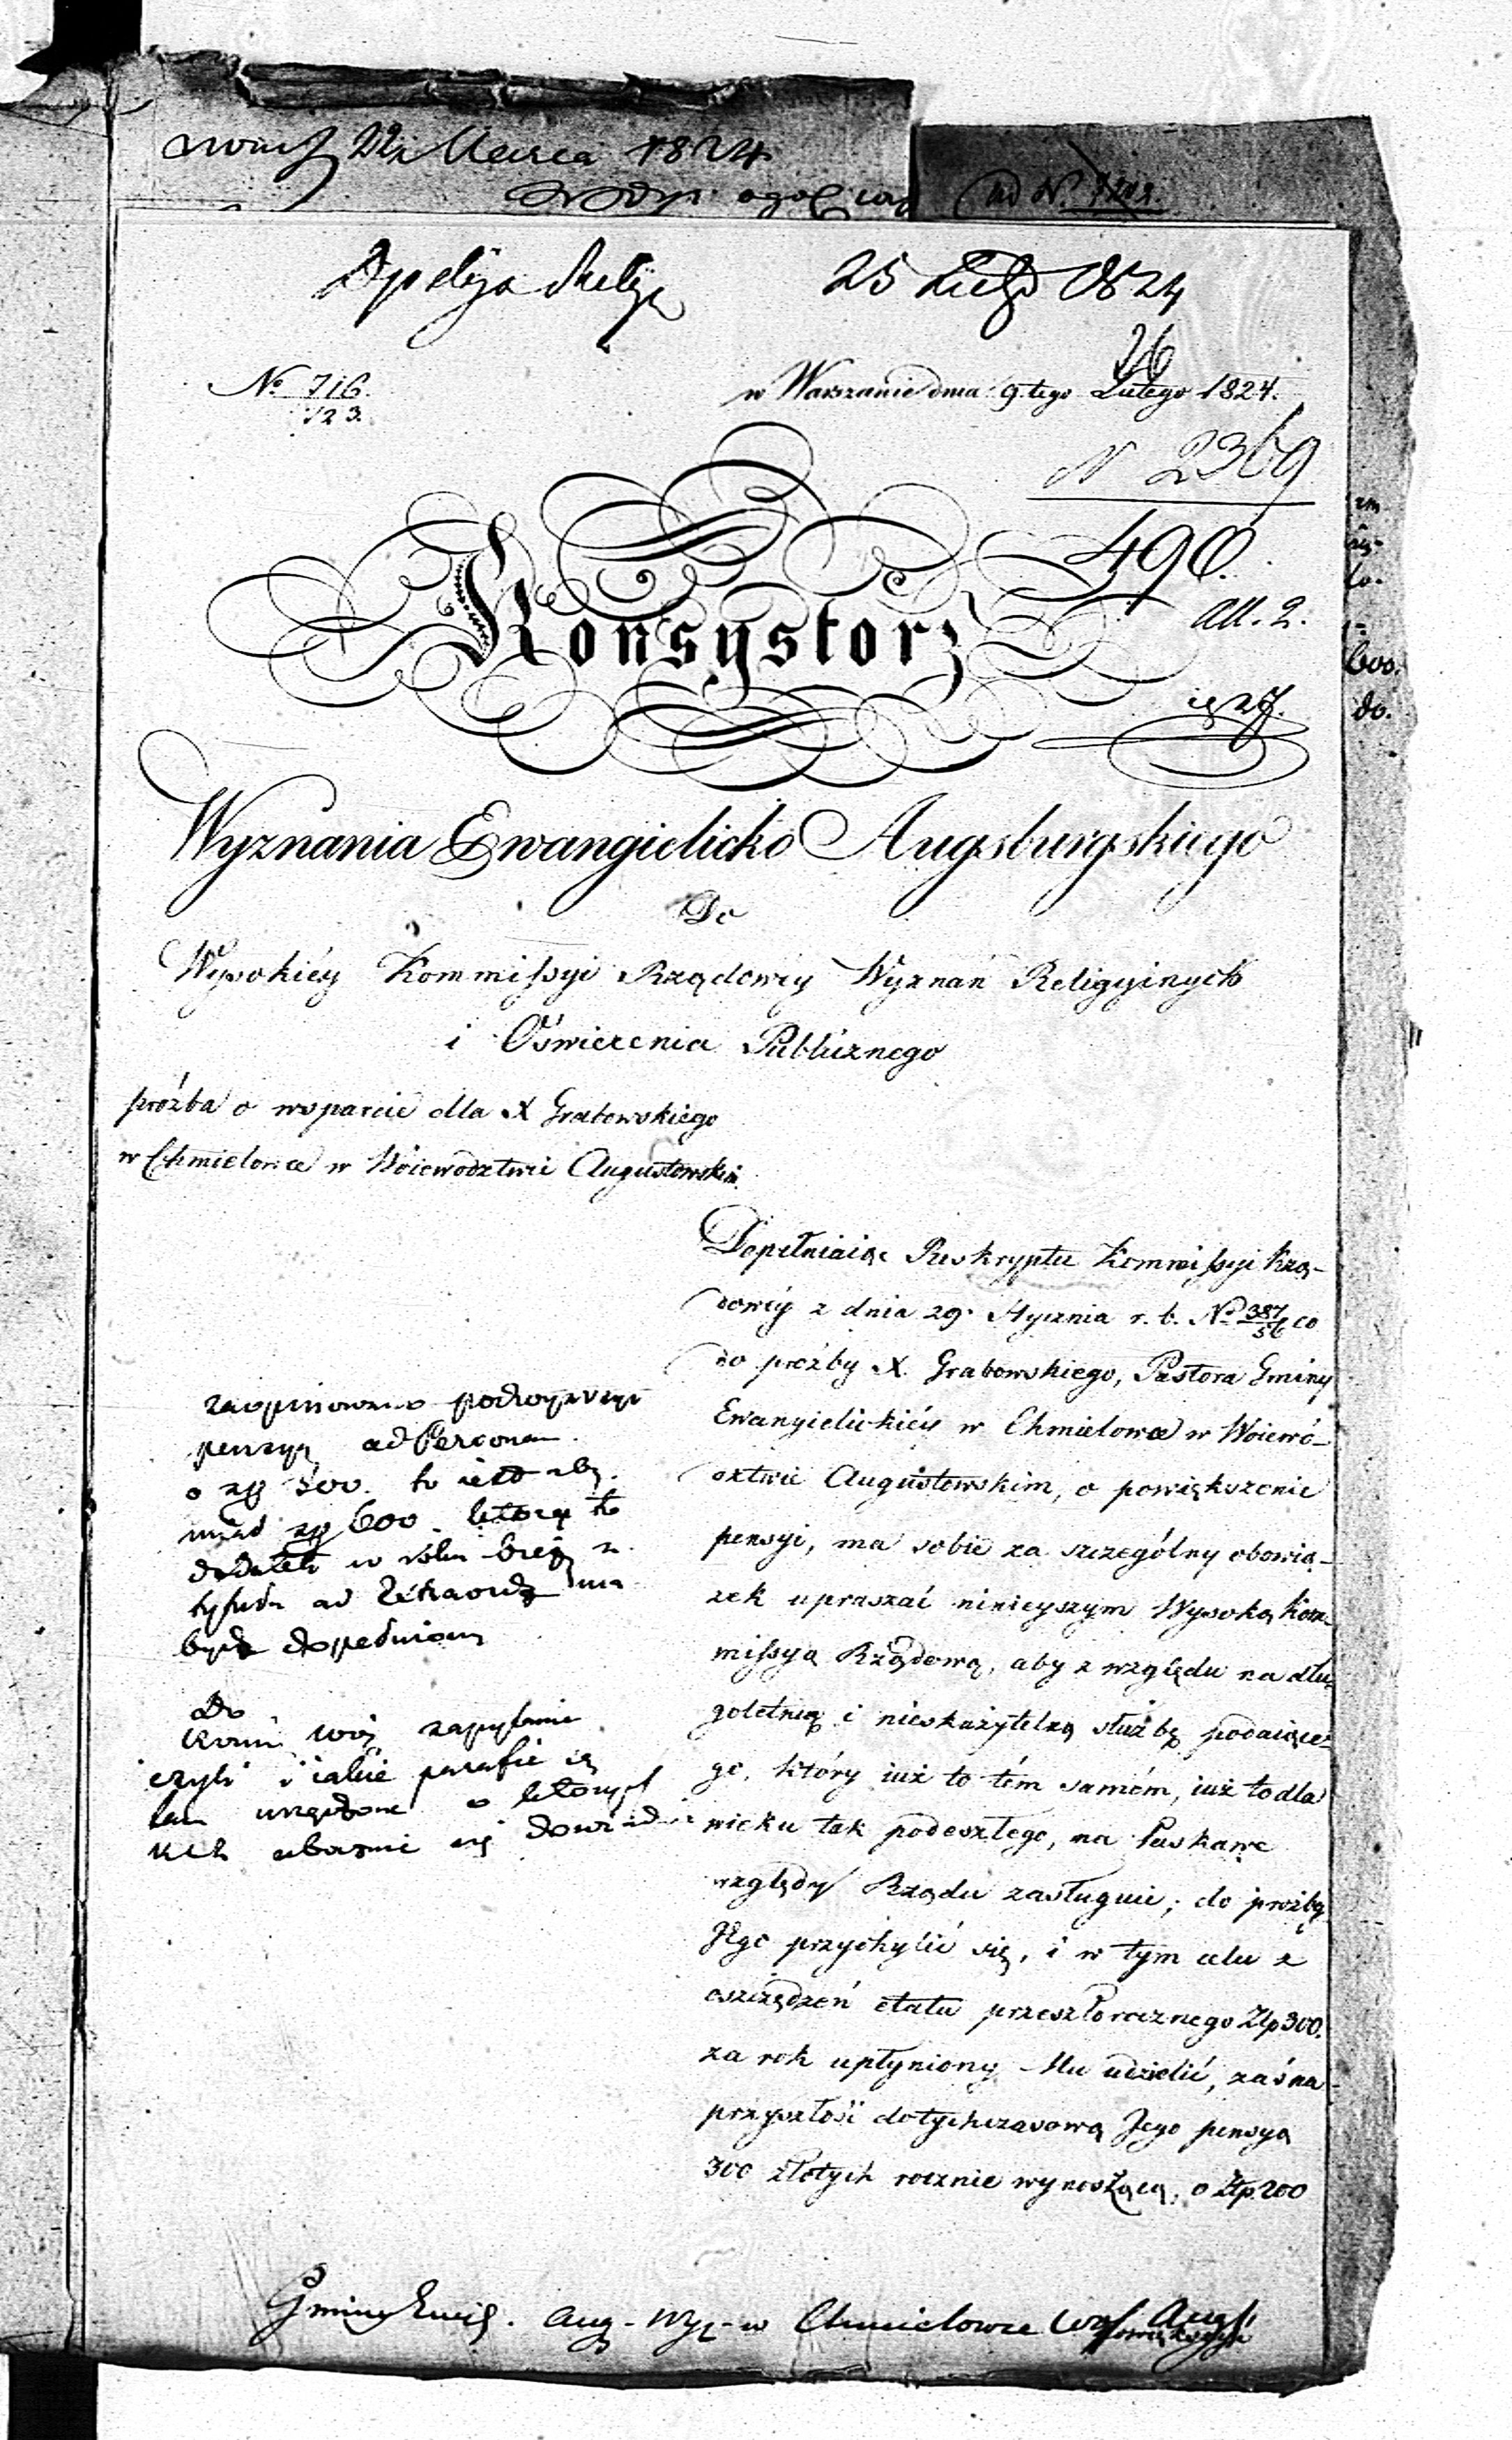 22 Marca 1824
ad N. 3202.
25 Lutego 1824
26
No 716.
123.
w Warszawie dnia 9. tego Lutego 1824.
N 2369
490.
All. 2.
Konsystorz
Wyznania Ewangielicko Augsburgskiego
Do
Wysokiéy Kommissyi Rządowéy Wyznań Religyinych
i Oświecenia Publicznego
proźba o wsparcie dla X Grabowskiego
w Chmielowce w Woiewództwie Augustowskim.
Dopełniaiąc Reskryptu Kommissyi Rzą-
dowéy z dnia 29. Stycznia r. b. No 387/56 co
do proźby X. Grabowskiego, Pastora Gminy
Ewangielickiéy w Chmielowce w Woiewó-
dztwie Augustowskim, o powiększenie
pensyi, ma sobie za szczególny obowią-
zek upraszać ninieyszym Wysoką Kom-
missyą Rządową, aby z względu na dłu-
goletnią i nieskazytelną służbę podaiące-
go, który iuż to tém samém, iuż to dla
wieku tak podeszłego, na łaskawe
względy Rządu zasługuie; do proźby
Jego przychylić się, i w tym celu z
oszczędzeń etatu przeszłorocznego Zlp 300.
za rok upłyniony Mu udzielić, zaś na
przyszłość dotychczasową Jego pensyą
300 złotych rocznie wynoszącą, o Złp. 200
powiększyć
pensyą ad Personam
o zp 300. to iest aby
miał zp 600. którą to
dodatek w roku bież. z
tytułu ad Extraord. ma
bydź dopełniony
Do
Komi Woj. zapytanie
czyli i iakie parafie są
tam urządzone o których
Gminy Ewang. Aug. Wyz. w Chmielowce Woj. Aug.
600.
do.